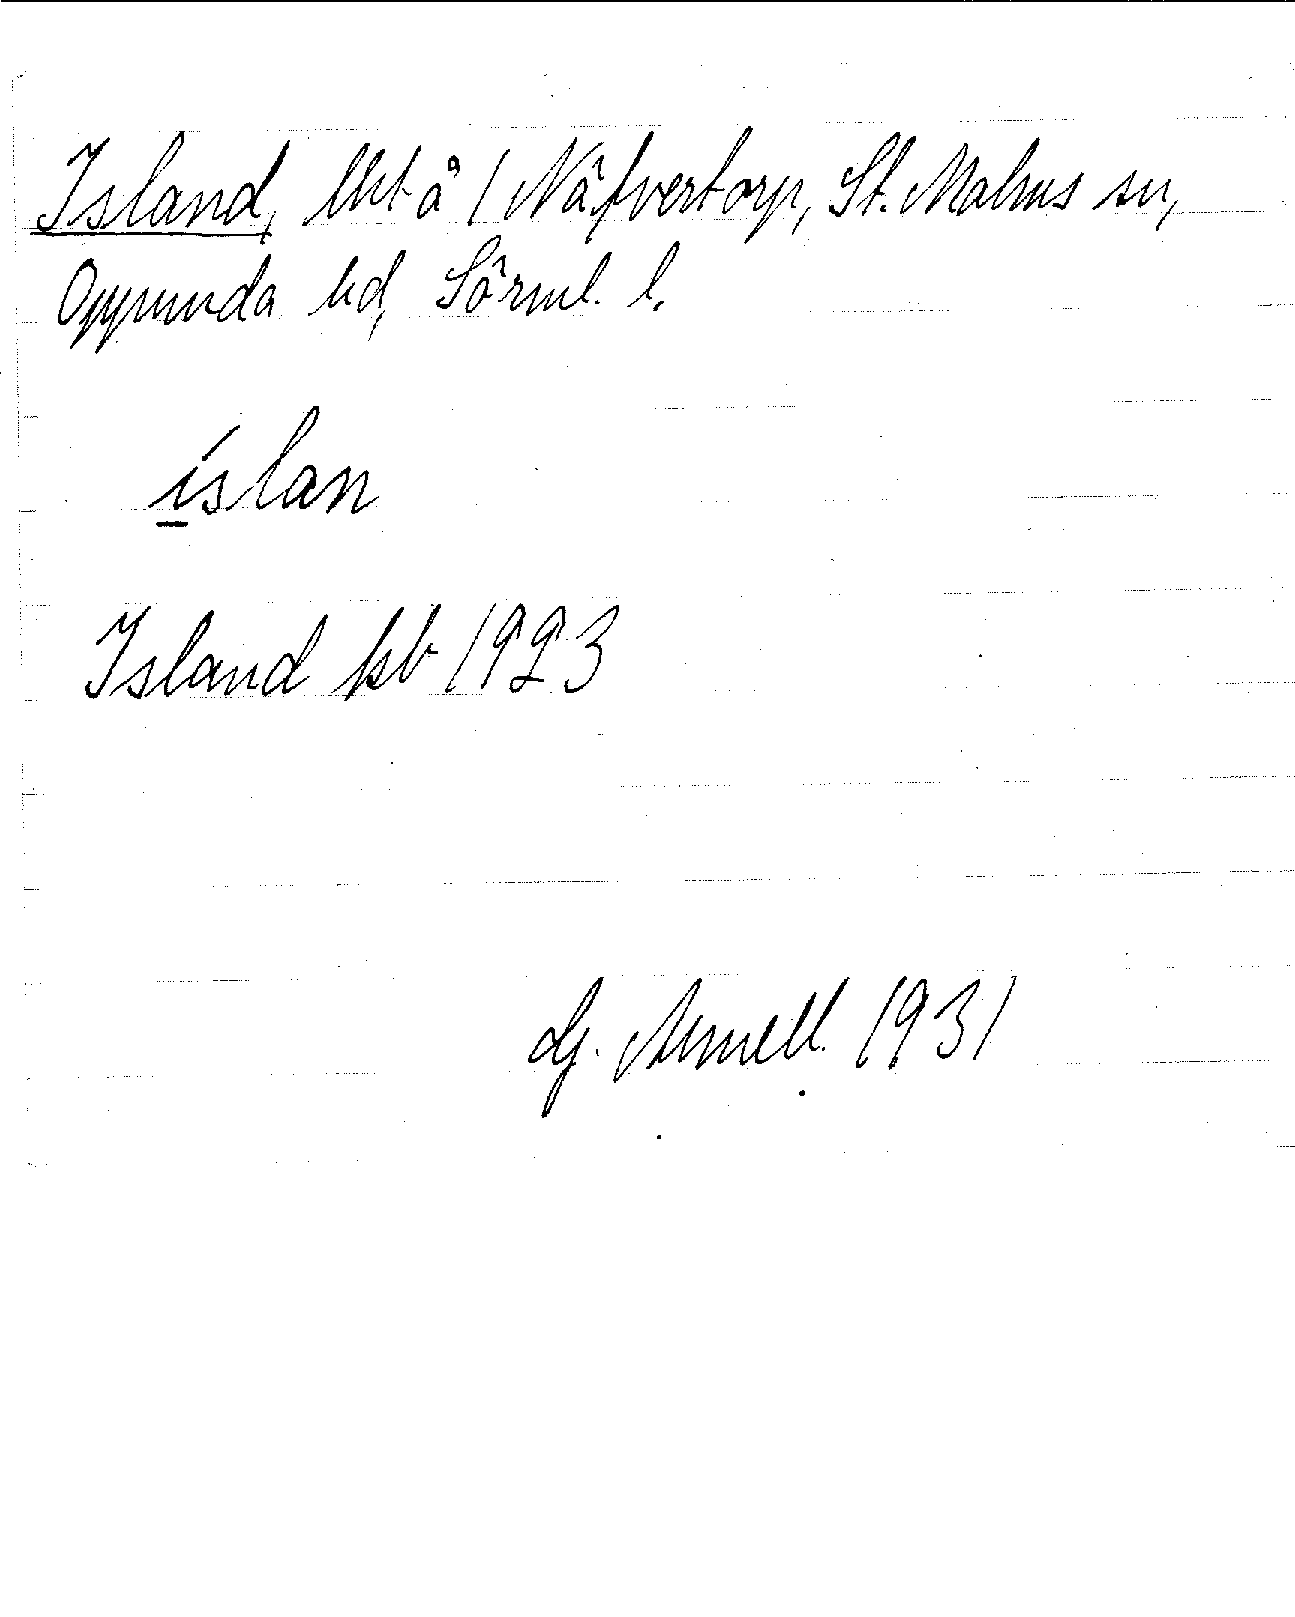 Island, lht å 1 Näfvertorp, St. Malms sn,
Oppunda hd, Sörml. l.
íslan
Island kb 1923
Gj. Arnell 1931